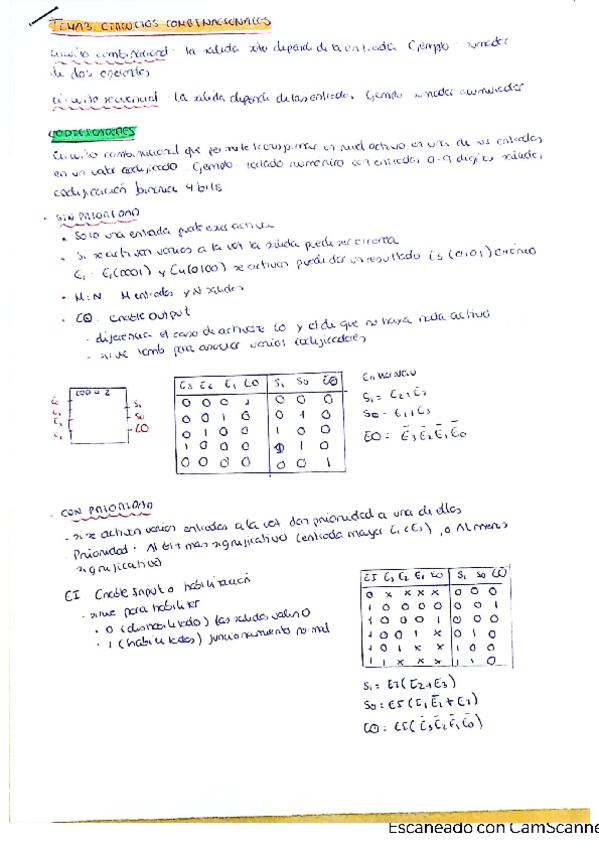 TEMA 3 CIRCUITOS COMBINACIONALES
Circuito combinacional: la salida solo depende de la entrada Ejemplo: sumador
de dos operandos
Circuito secuencial: La salida depende de las entradas. Ejemplo sumador acumulador
CODIFICADORES
Circuito combinacional que permite transformar un nivel activo en una de sus entradas
en un valor codificado. Ejemplo: teclado numerico con entradas 0-9 digitos salida,
codificación binaria 4 bits
· SIN PRIORIDAD
• Solo una entrada puede estar activa
• Si se activan varios a la vez la salida puede ser erronea
E1(0001) y E4(0100) se activan puede dar un resultado (0101) erróneo
• M:N M entradas y N salidas
• EO: Enable Output
- diferencia el caso de activarse E0 y el de que no haya nada activo
- sirve tamb para asociar varios codificadores
COD 4:2
S1
S0
EO
E3 E2 E1 E0 S1 S0 EO
0 0 0 1 0 0 0
0 0 1 0 0 1 0
0 1 0 0 1 0 0
1 0 0 0 1 1 0
0 0 0 0 0 0 1
S1 = E2+E3
S0 = E1+E3
EO = Ē3Ē2Ē1Ē0
· CON PRIORIDAD
- si se activan varias entradas a la vez dan prioridad a una de ellas
- Prioridad: Al bit más significativo (entrada mayor), o Al menos
significativo
EI Enable Input o habilitación
- sirve para habilitar
• 0 (dishabilitado) las salidas valen 0
• 1 (habilitadas) funcionamiento normal
EI E3 E2 E1 E0 S1 S0 EO
0 x x x x 0 0 0
1 0 0 0 0 0 0 1
1 0 0 0 1 0 0 0
1 0 0 1 x 0 1 0
1 0 1 x x 1 0 0
1 1 x x x 1 1 0
S1 = EI(E2+E3)
EO = EI(Ē3Ē2Ē1Ē0)
Escaneado con CamScanne